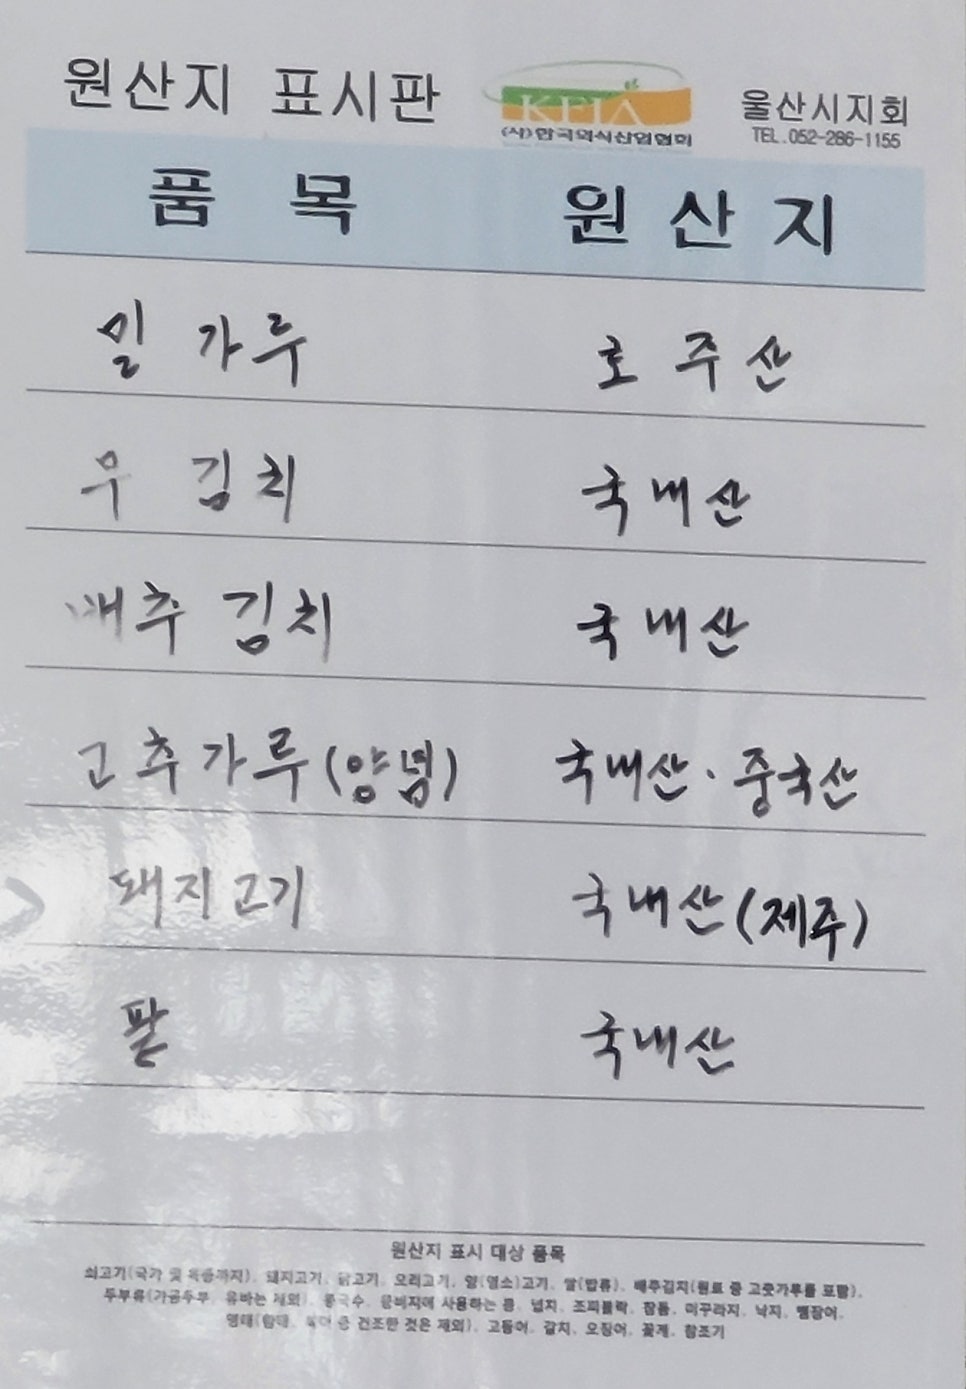 원산지 표시판
KFIA
(사)한국외식산업협회
울산시지회
TEL.052-286-1155
품 목 원 산 지
밀 가루 호 주 산
무 김치 국내산
배추 김치 국내산
고추가루(양념) 국내산·중국산
돼지고기 국내산(제주)
팥 국내산
원산지 표시 대상 품목
쇠고기(국가 및 축종까지), 돼지고기, 닭고기, 오리고기, 양(염소)고기, 쌀(밥류), 배추김치(원료 중 고춧가루를 포함),
두부류(가공두부, 유바는 제외), 콩국수, 콩비지에 사용하는 콩, 넙치, 조피볼락, 참돔, 미꾸라지, 낙지, 뱀장어,
명태(황태, 북어 등 건조한 것은 제외), 고등어, 갈치, 오징어, 꽃게, 참조기